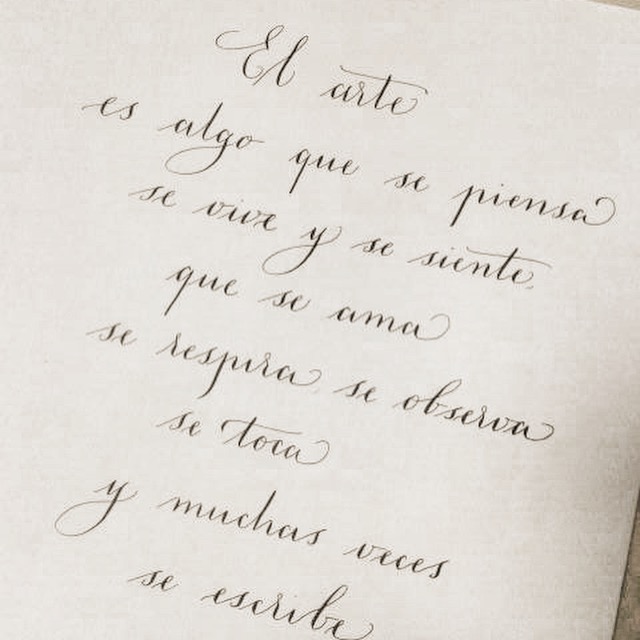 El arte
es algo que se piensa
se vive y se siente.
que se ama
se respira se observa
se toca
y muchas veces
se escribe